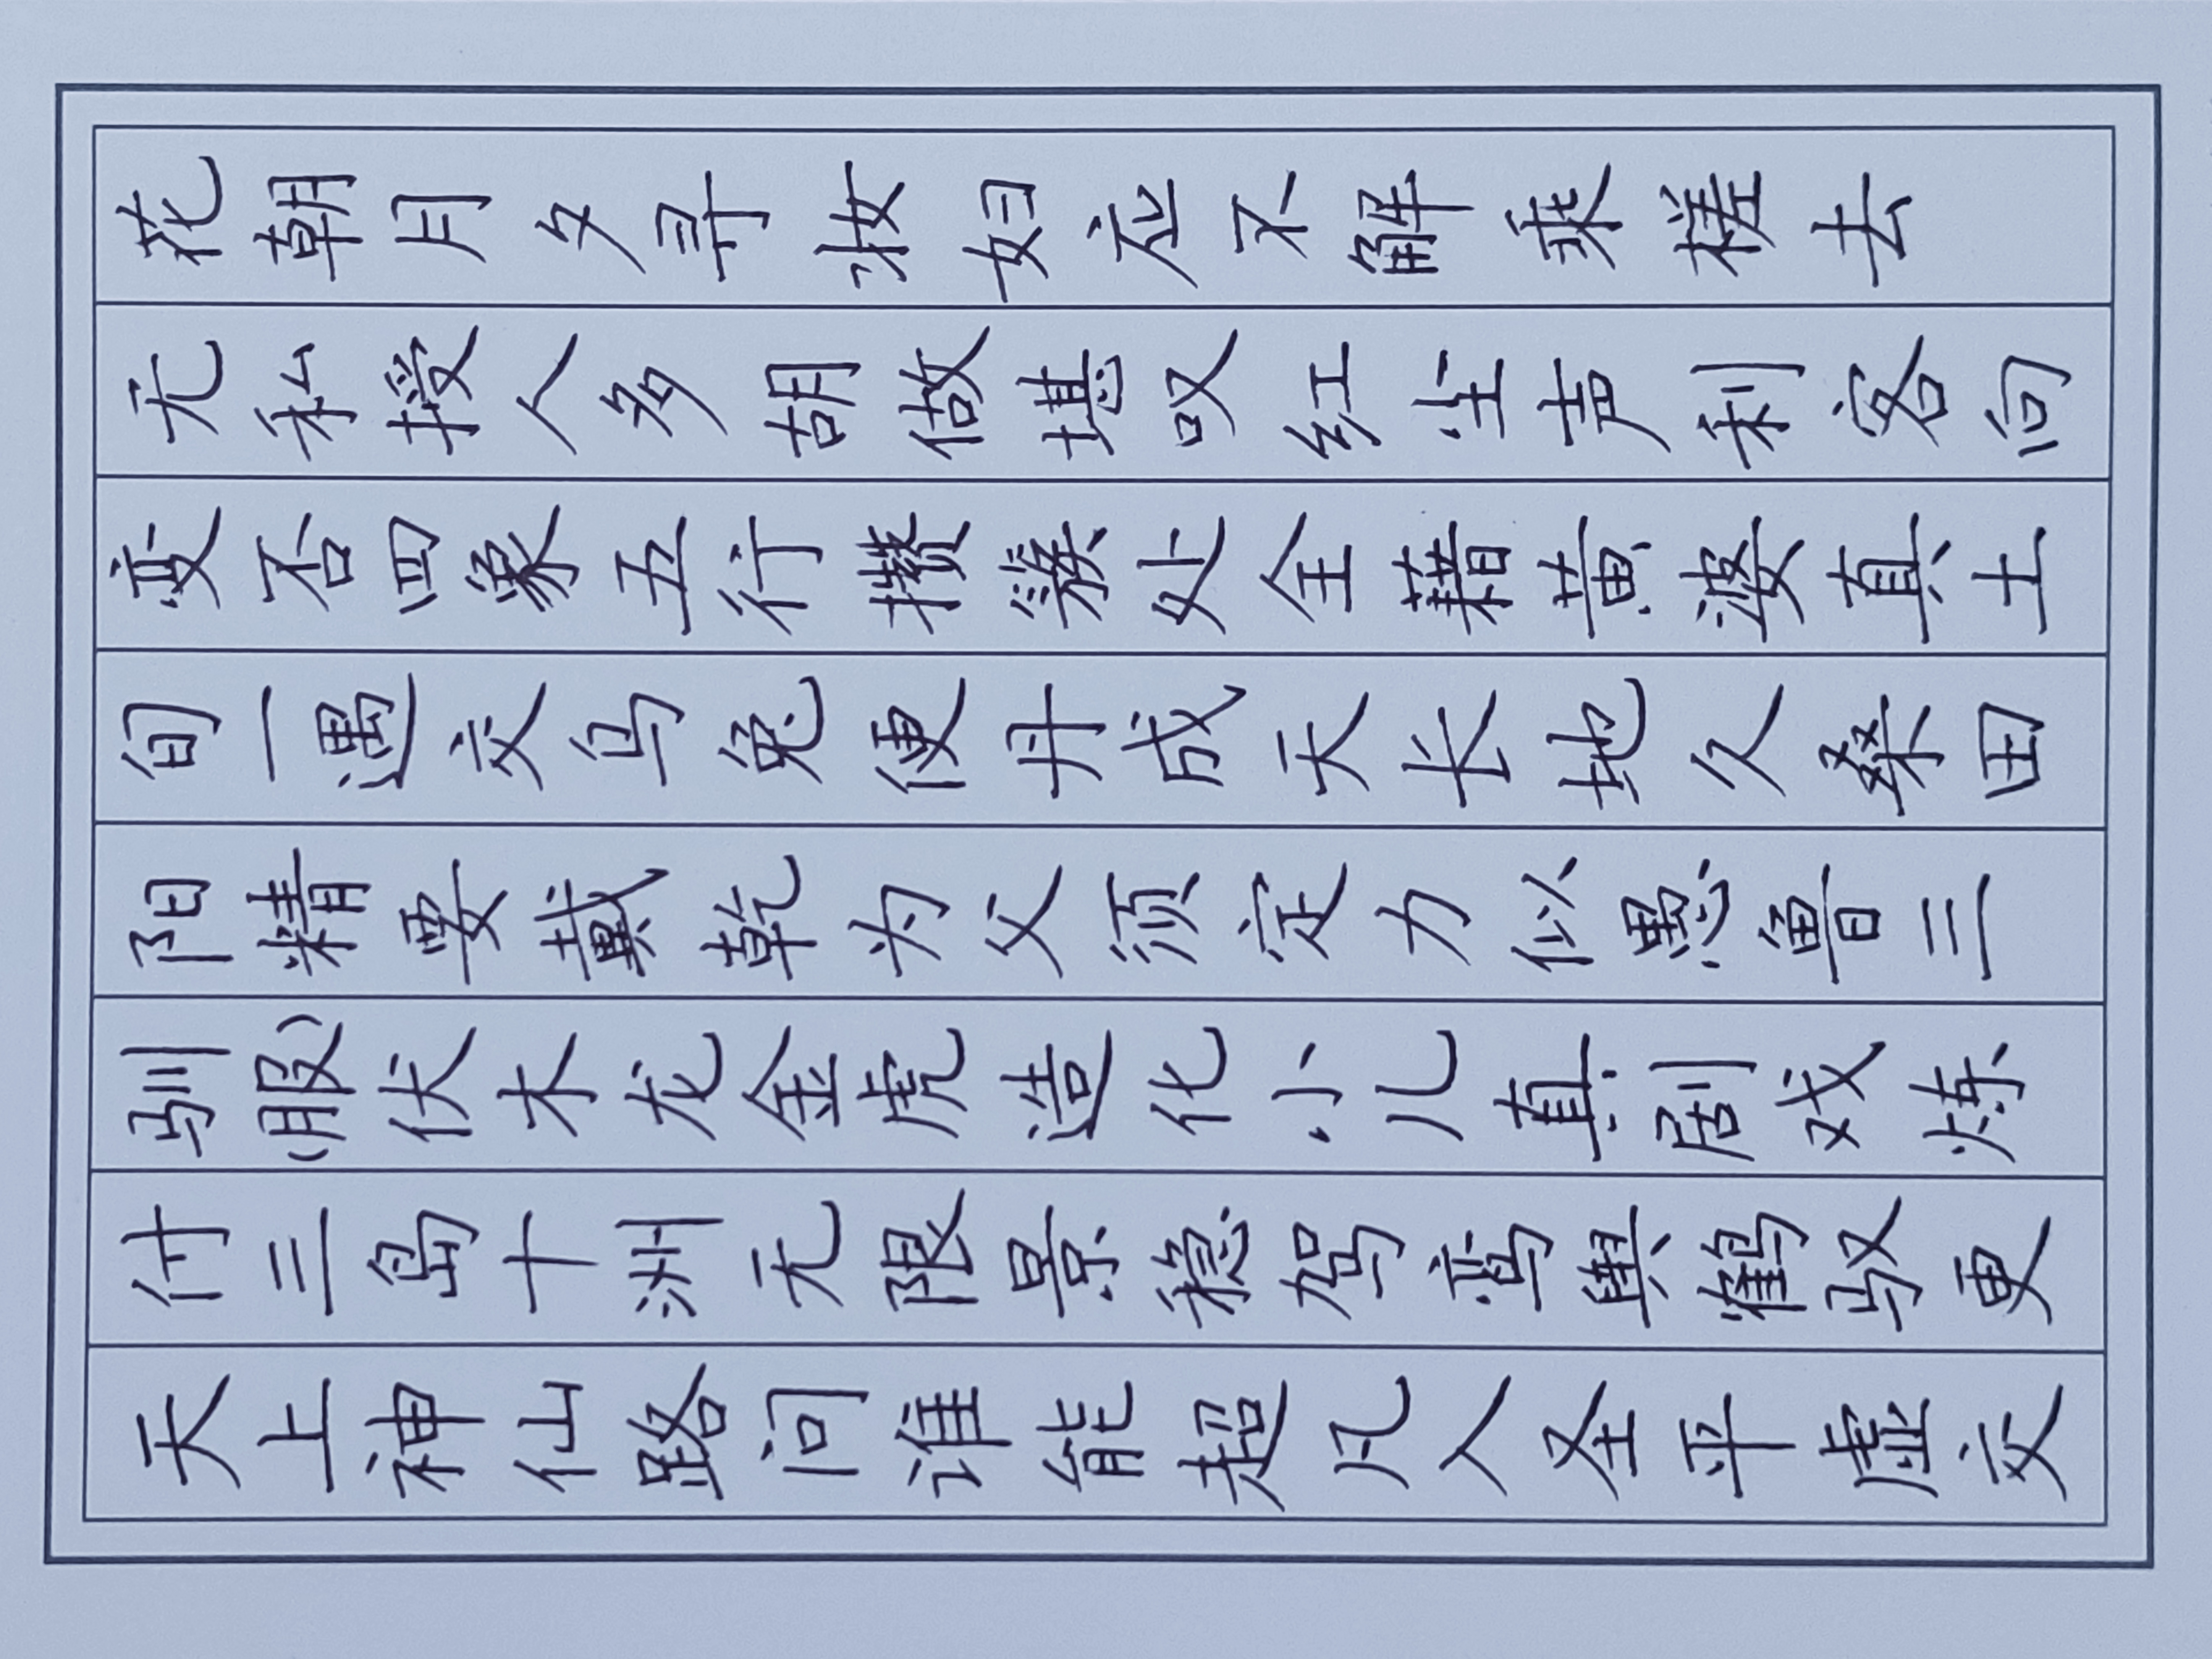 天上神仙路问谁能超凡人圣平虚交
付三岛十洲无限景稳驾鸾舆鹤驭更
驯(服)伏木龙金虎造化小儿真剧戏炼
阳精要戴乾为父须定力似愚鲁三
旬一遇交乌兔便丹成天长地久桑田
变否四象五行攒簇处全藉黄婆真土
无私授人多胡做堪叹红尘声利客向
花朝月夕寻妆妇应不解乘槎去